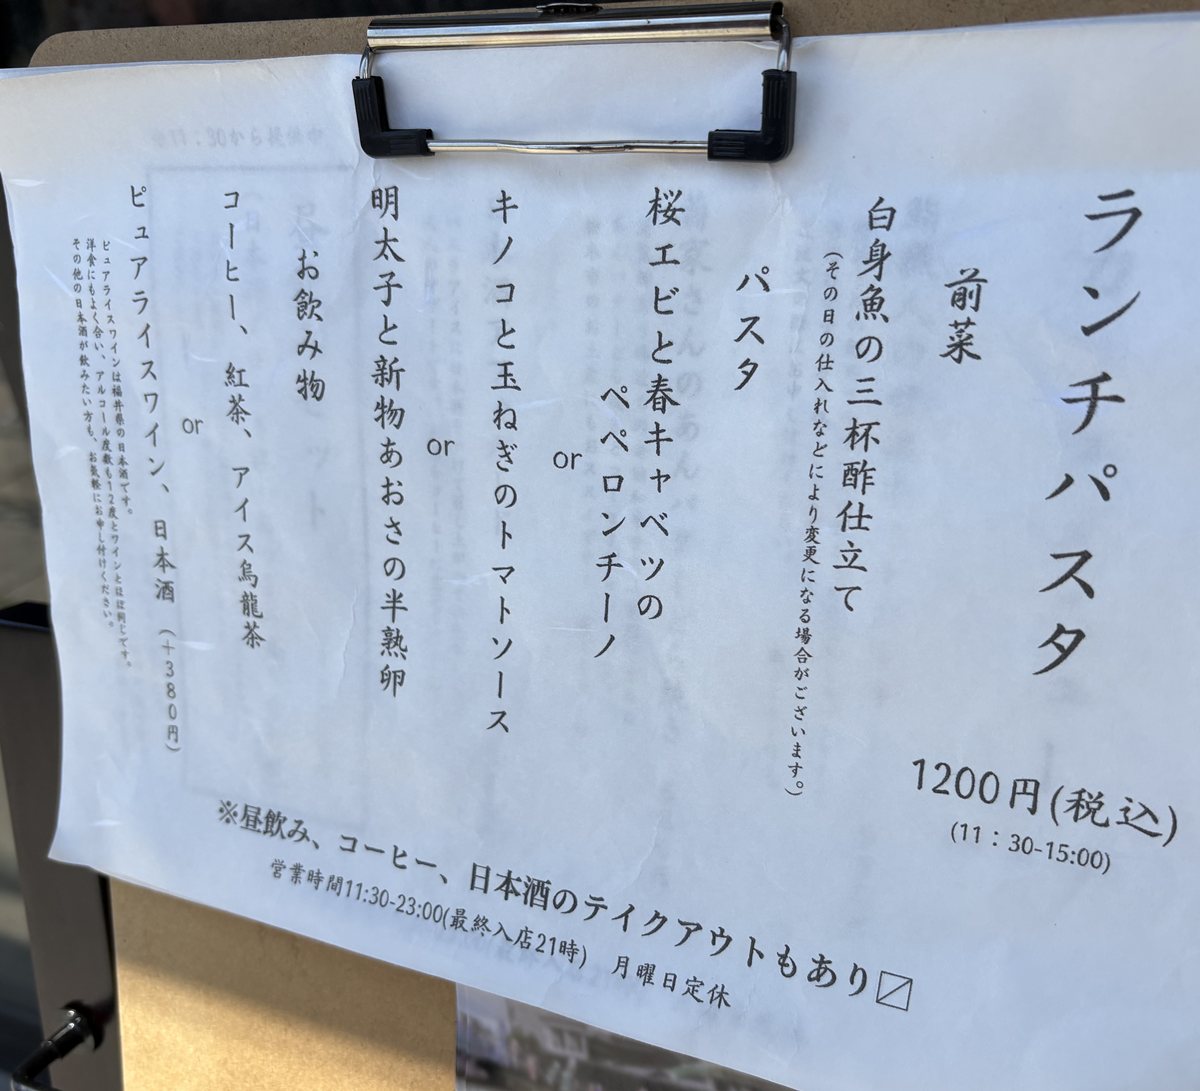 ランチパスタ
1200円(税込)
(11：30-15:00)
前菜
白身魚の三杯酢仕立て
(その日の仕入れなどにより変更になる場合がございます。)
パスタ
桜エビと春キャベツの
ペペロンチーノ
or
キノコと玉ねぎのトマトソース
or
明太子と新物あおさの半熟卵
お飲み物
コーヒー、紅茶、アイス烏龍茶
or
ピュアライスワイン、日本酒（＋380円）
ピュアライスワインは福井県の日本酒です。
洋食にもよく合い、アルコール度数も12度とワインとほぼ同じです。
その他の日本酒が飲みたい方も、お気軽にお申し付けください。
※昼飲み、コーヒー、日本酒のテイクアウトもあり〼
営業時間11:30-23:00(最終入店21時)　月曜日定休